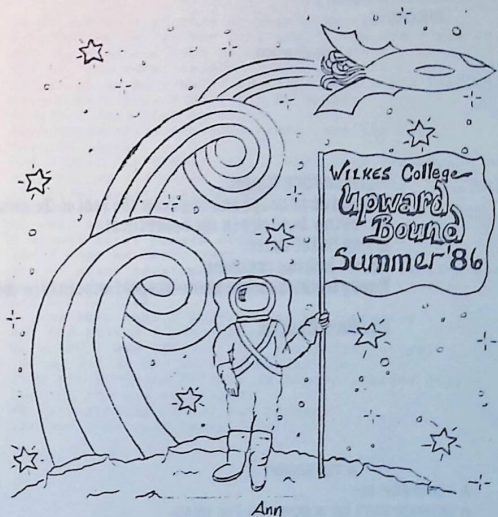 Wilkes College
Upward
Bound
Summer '86
Ann